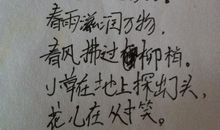 春雨滋润万物,
春风拂过柳梢。
小草在地上探出头,
花儿在对笑。